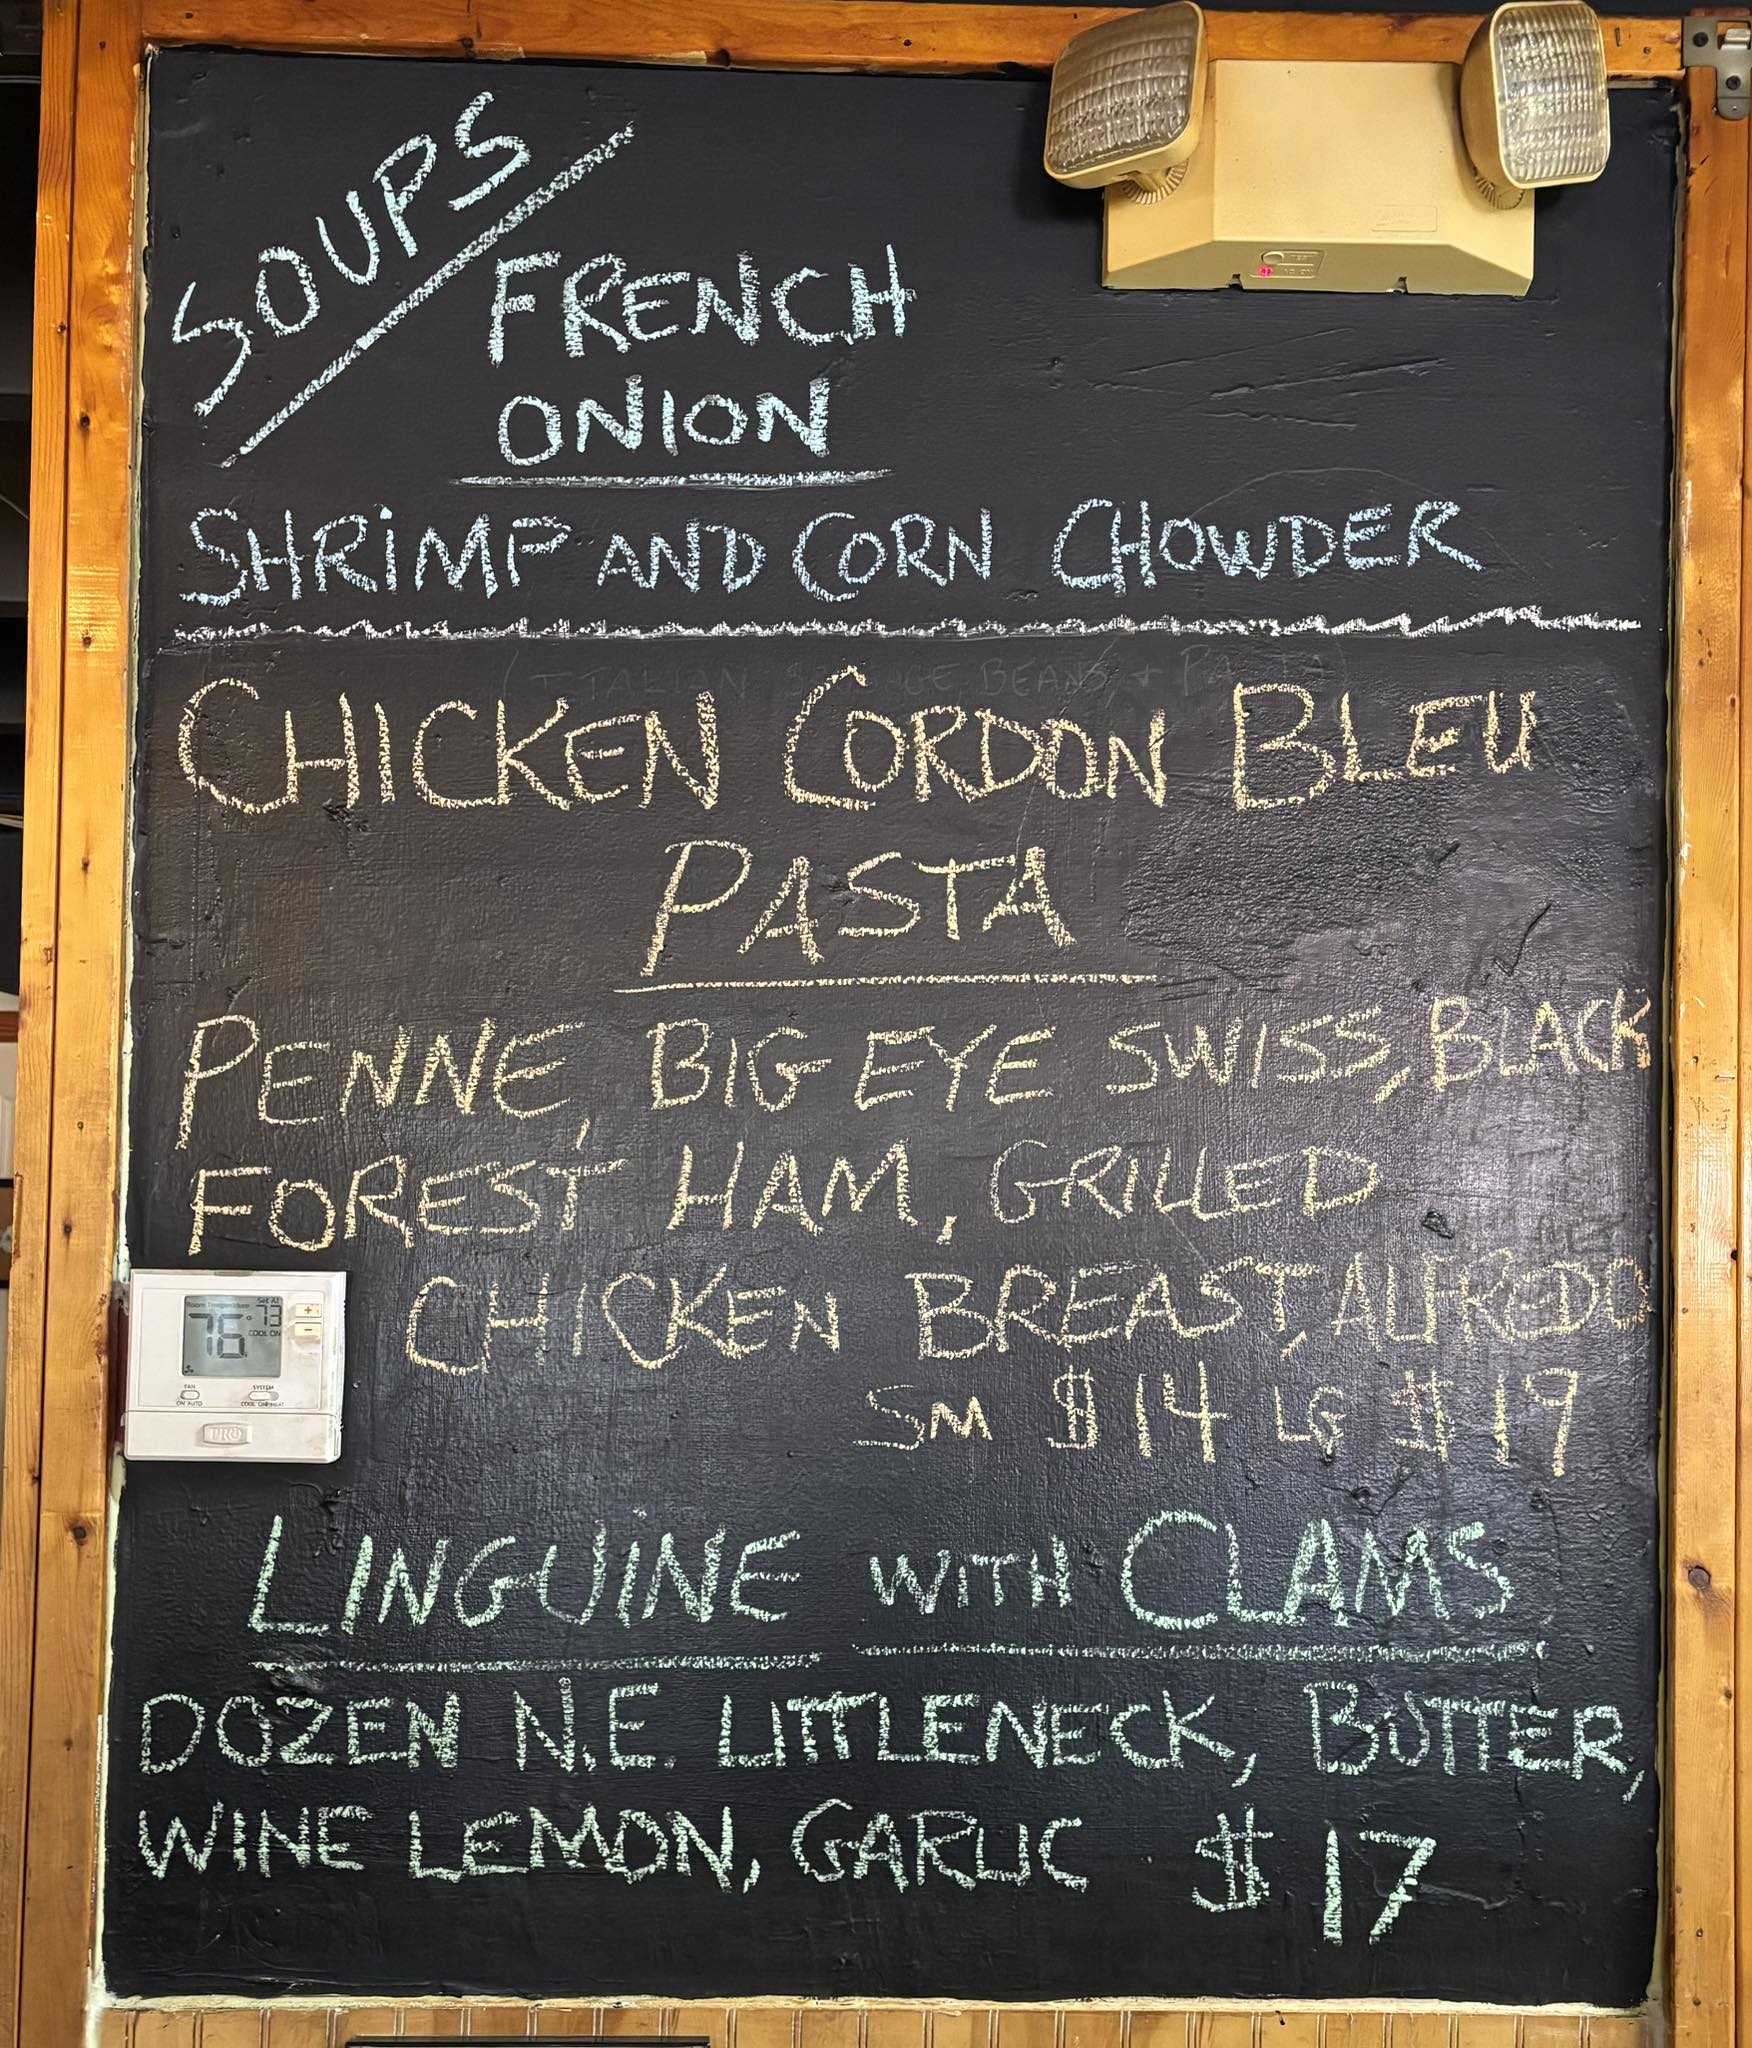 SOUPS
FRENCH
ONION
SHRIMP AND CORN CHOWDER
CHICKEN CORDON BLEU
PASTA
PENNE, BIG EYE SWISS, BLACK
FOREST HAM, GRILLED
CHICKEN BREAST, ALFREDO
SM $14 LG $19
LINGUINE WITH CLAMS
DOZEN N.E. LITTLENECK, BUTTER,
WINE LEMON, GARLIC $17
Room Temperature Set At
76° 73
COOL ON
FAN SYSTEM
ON AUTO COOL OFF HEAT
PRO